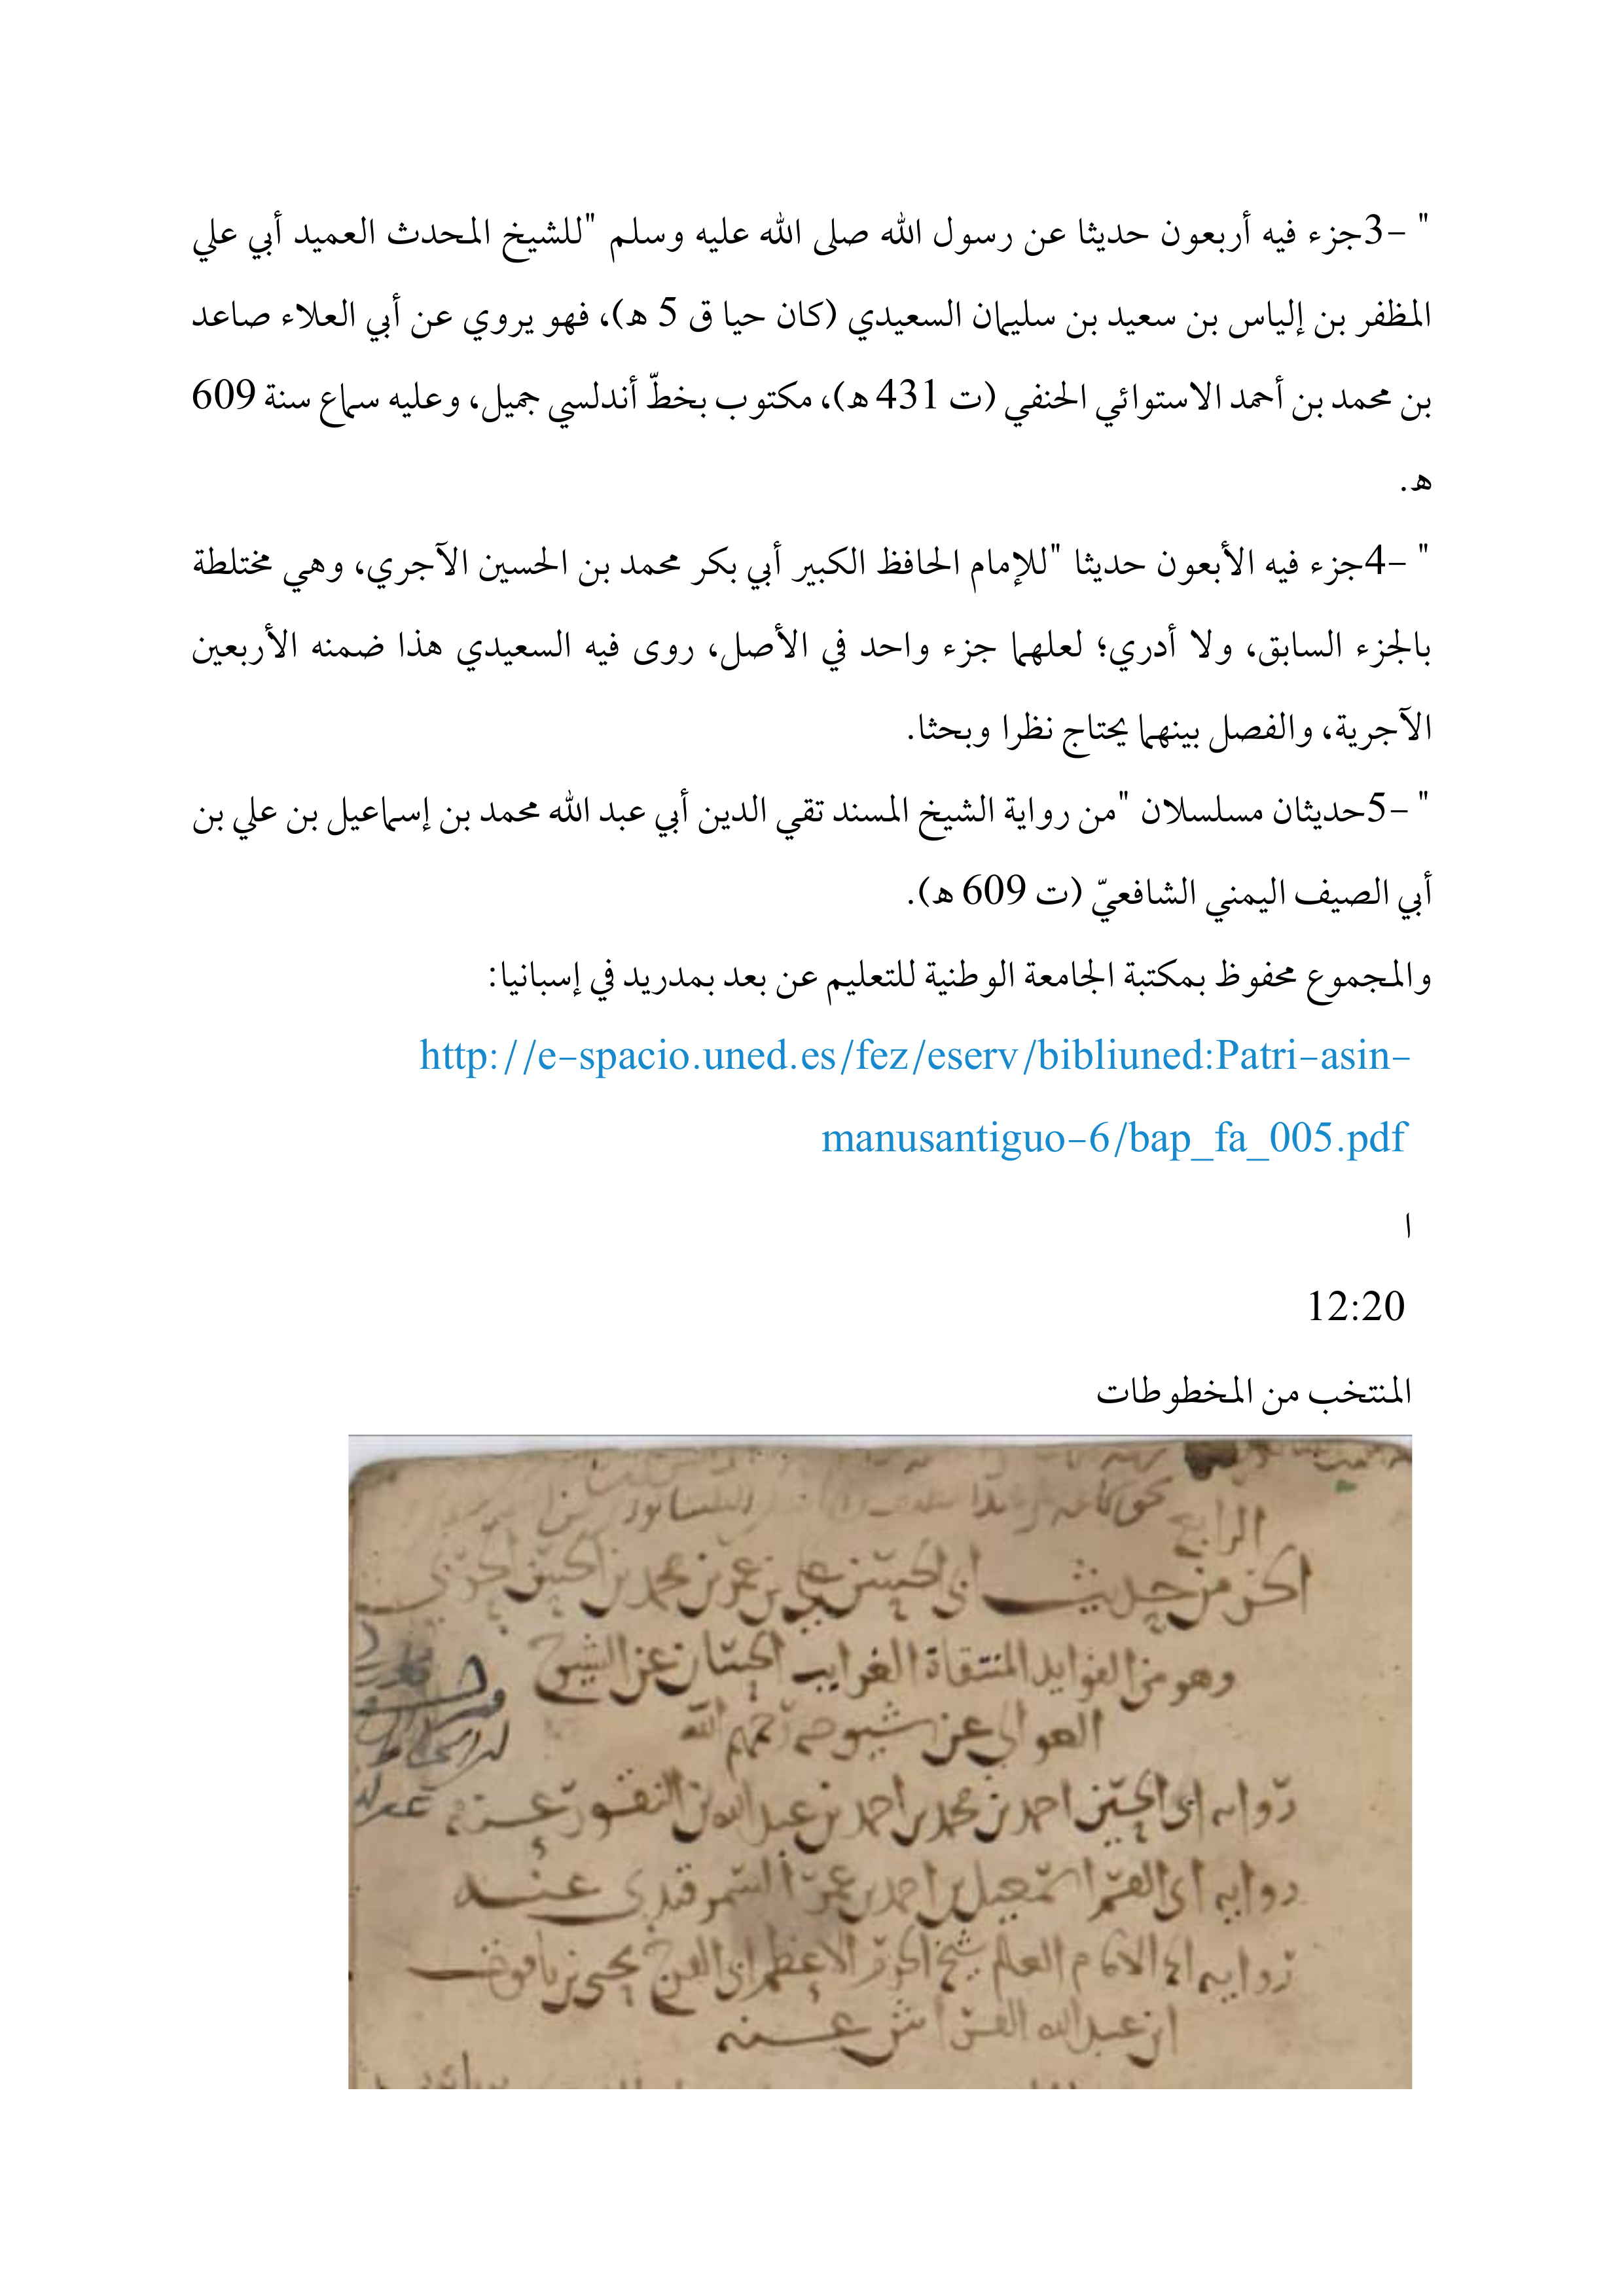 " -3جزء فيه أربعون حديثا عن رسول الله صلى الله عليه وسلم "للشيخ المحدث العميد أبي علي
المظفر بن إلياس بن سعيد بن سليمان السعيدي (كان حيا ق 5 ه)، فهو يروي عن أبي العلاء صاعد
بن محمد بن أحمد الاستوائي الحنفي (ت 431 ه)، مكتوب بخطّ أندلسي جميل، وعليه سماع سنة 609
ه.
" -4جزء فيه الأبعون حديثا "للإمام الحافظ الكبير أبي بكر محمد بن الحسين الآجري، وهي مختلطة
بالجزء السابق، ولا أدري؛ لعلهما جزء واحد في الأصل، روى فيه السعيدي هذا ضمنه الأربعين
الآجرية، والفصل بينهما يحتاج نظرا وبحثا.
" -5حديثان مسلسلان "من رواية الشيخ المسند تقي الدين أبي عبد الله محمد بن إسماعيل بن علي بن
أبي الصيف اليمني الشافعيّ (ت 609 ه).
والمجموع محفوظ بمكتبة الجامعة الوطنية للتعليم عن بعد بمدريد في إسبانيا:
http://e-spacio.uned.es/fez/eserv/bibliuned:Patri-asin-
manusantiguo-6/bap_fa_005.pdf
ا
12:20
المنتخب من المخطوطات
الرابع
الجزء من حديث ابي الحسن علي بن عمر بن محمد بن الحسن الحربي
وهو من الفوايد المنتقاة الغرايب الحسان عن الشيوخ
العوالي عن شيوخه رحمهم الله
رواية ابي الحسين احمد بن محمد بن احمد بن عبد الله بن النقور عنه
رواية ابي القسم اسمعيل بن احمد بن عمر السمرقندي عنه
رواية الامام العالم شيخ الحرم الاعظم ابي الفرج يحيى بن ياقوت
ابن عبد الله الفراش عنه